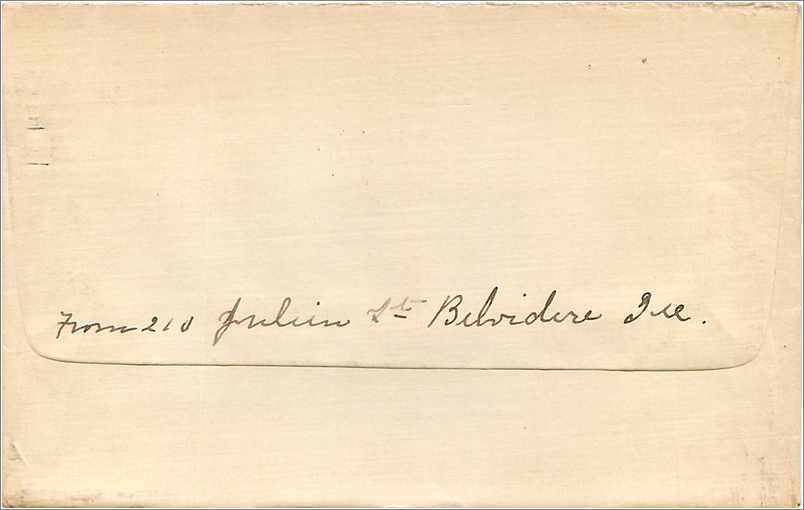 From 210 Julien St Belvidere Ill.